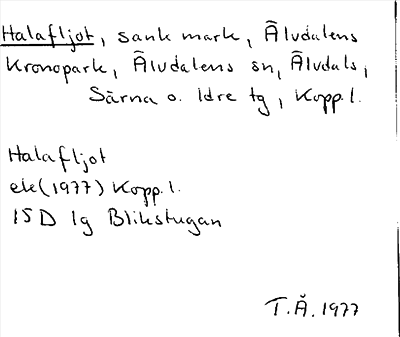 Halafljot, sank mark, Älvdalens
Kronopark, Älvdalens sn, Älvdals,
Särna o. Idre tg, Kopp.l.
Halafljot
ek (1977) Kopp.l.
15D 1g Blikstugan
T.Å. 1977